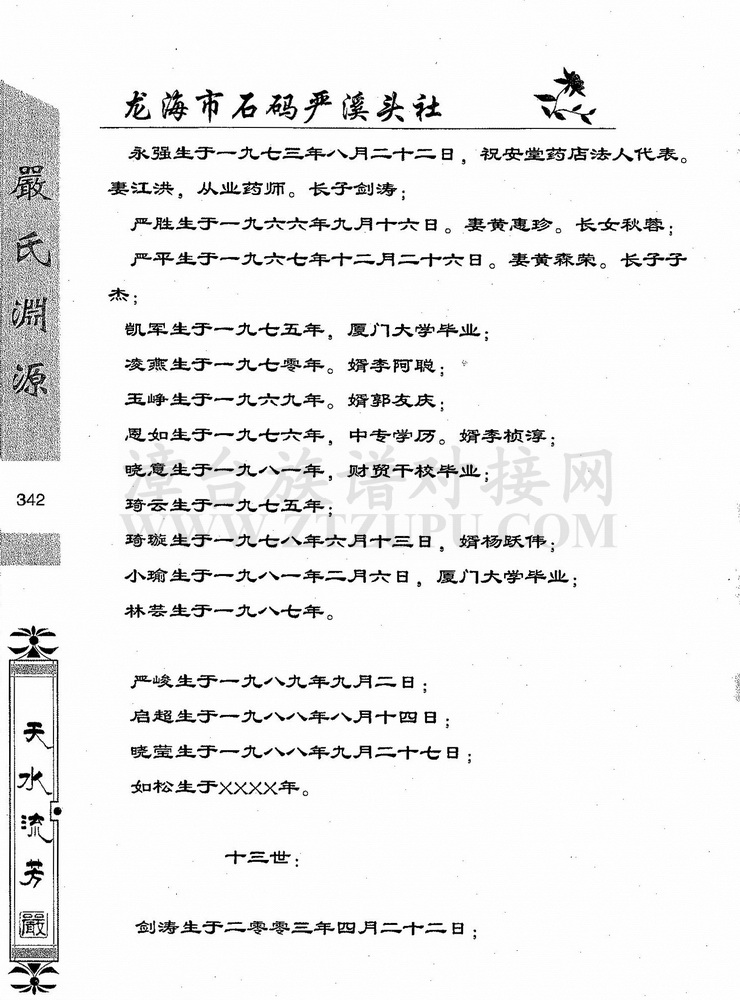 龙海市石码严溪头社
永强生于一九七三年八月二十二日，祝安堂药店法人代表。
妻江洪，从业药师。长子剑涛；
严胜生于一九六六年九月十六日。妻黄惠珍。长女秋蓉；
严平生于一九六七年十二月二十六日。妻黄森荣。长子子
杰；
凯军生于一九七五年，厦门大学毕业；
凌燕生于一九七零年。婿李阿聪；
玉峥生于一九六九年。婿郭友庆；
恩如生于一九七六年，中专学历。婿李桢淳；
晓意生于一九八一年，财贸干校毕业；
琦云生于一九七五年；
琦璇生于一九七八年六月十三日，婿杨跃伟；
小瑜生于一九八一年二月六日，厦门大学毕业；
林芸生于一九八七年。
严峻生于一九八九年九月二日；
启超生于一九八八年八月十四日；
晓莹生于一九八八年九月二十七日；
如松生于XXXX年。
十三世：
剑涛生于二零零三年四月二十二日；
嚴氏淵源
342
天水流芳
嚴
漳台族谱对接网
WWW.ZTZUPU.COM